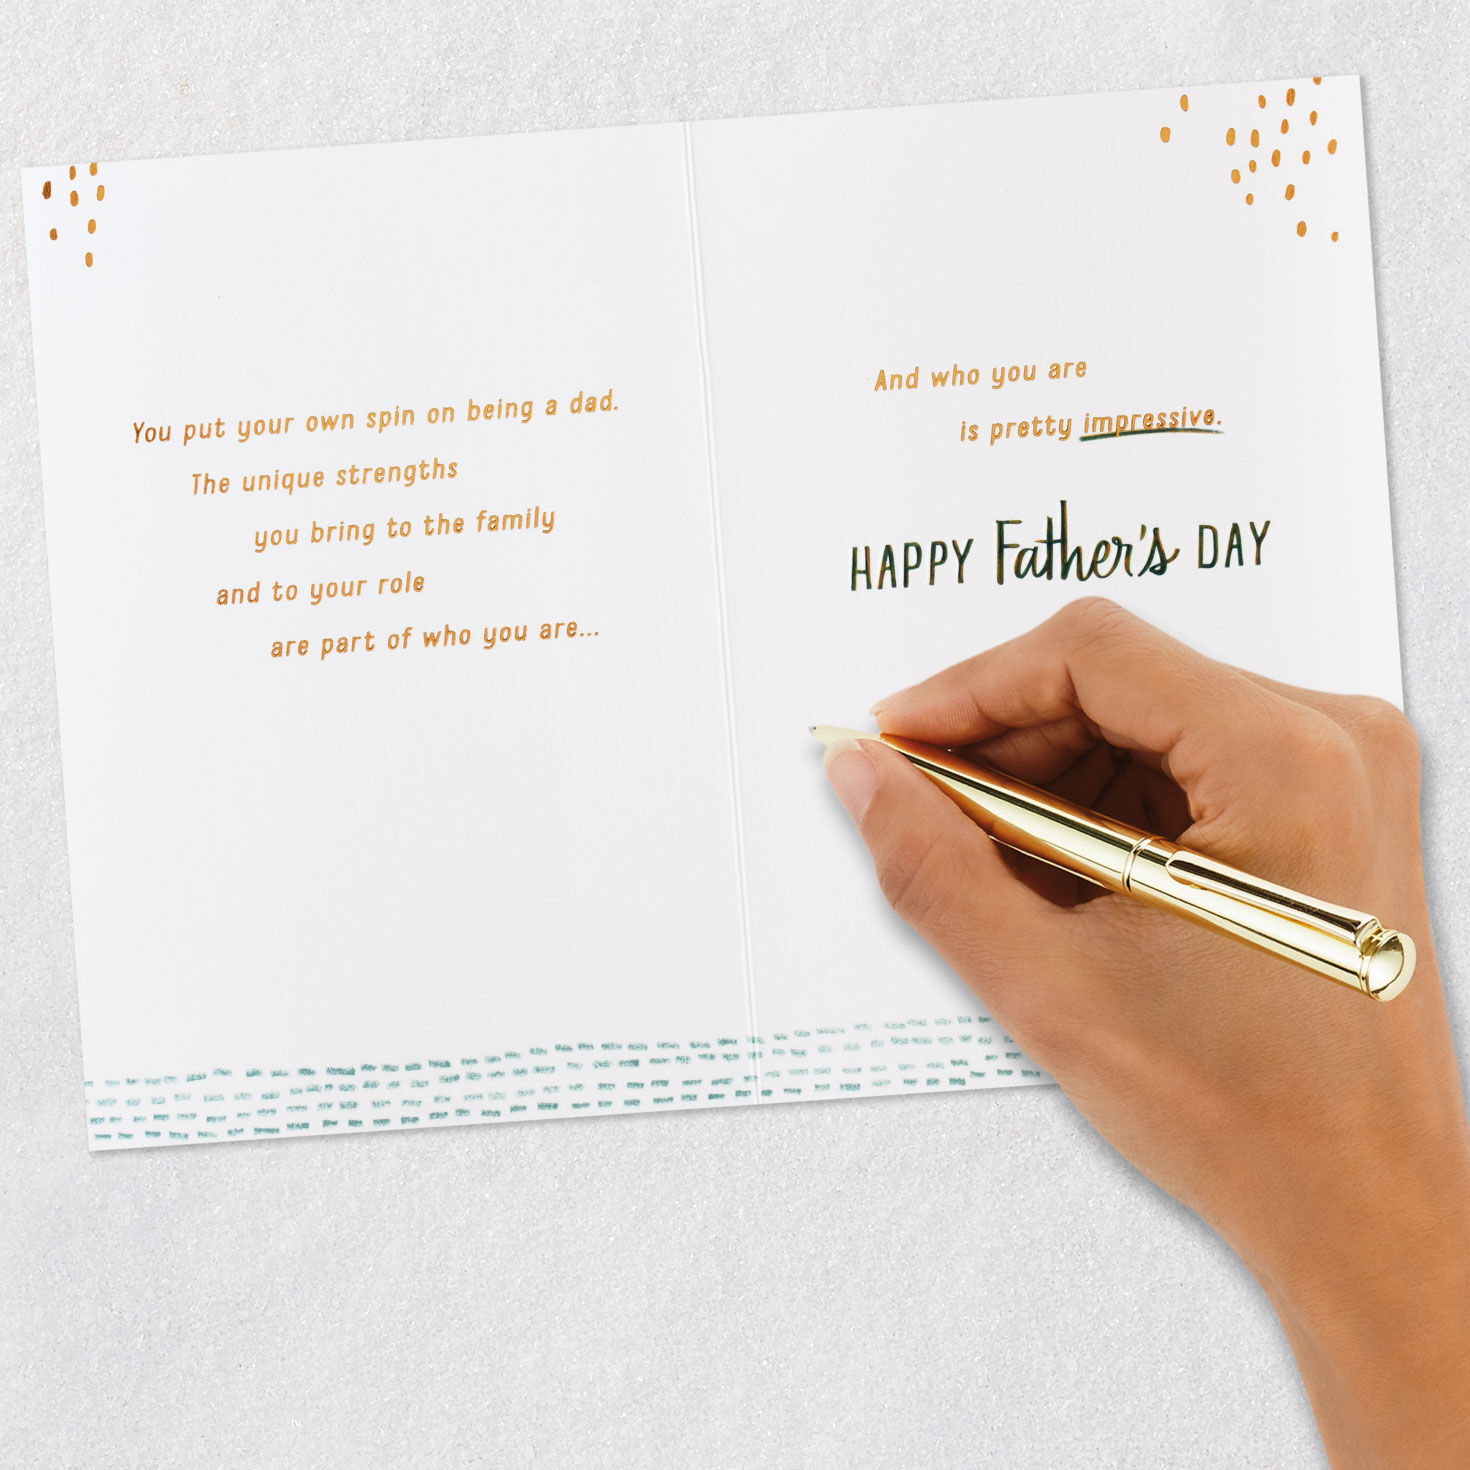 You put your own spin on being a dad.
The unique strengths
you bring to the family
and to your role
are part of who you are...
And who you are
is pretty impressive.
HAPPY Father's DAY